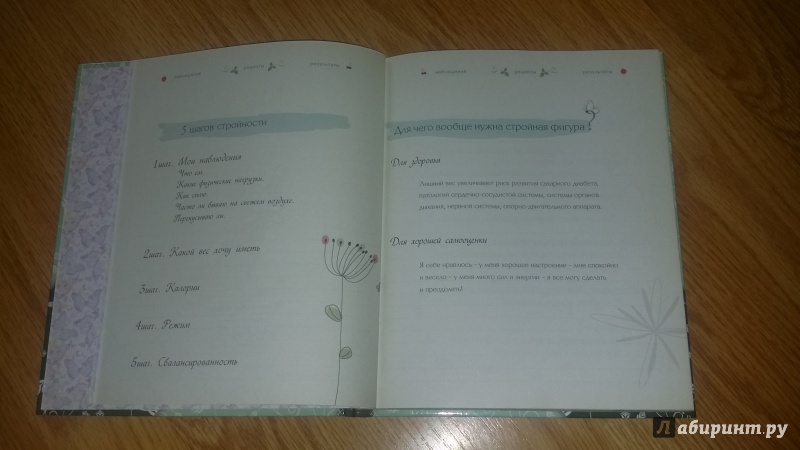 наблюдения рецепты результаты
5 шагов стройности
1шаг. Мои наблюдения
Что ем.
Какие физические нагрузки.
Как сплю.
Часто ли бываю на свежем воздухе.
Перекусываю ли.
2шаг. Какой вес хочу иметь
3шаг. Калории
4шаг. Режим
5шаг. Сбалансированность
наблюдения рецепты результаты
Для чего вообще нужна стройная фигура?
Для здоровья
Лишний вес увеличивает риск развития сахарного диабета,
патологии сердечно-сосудистой системы, системы органов
дыхания, нервной системы, опорно-двигательного аппарата.
Для хорошей самооценки
Я себе нравлюсь – у меня хорошее настроение – мне спокойно
и весело – у меня много сил и энергии – я все могу сделать
и преодолеть!
Лабиринт.ру